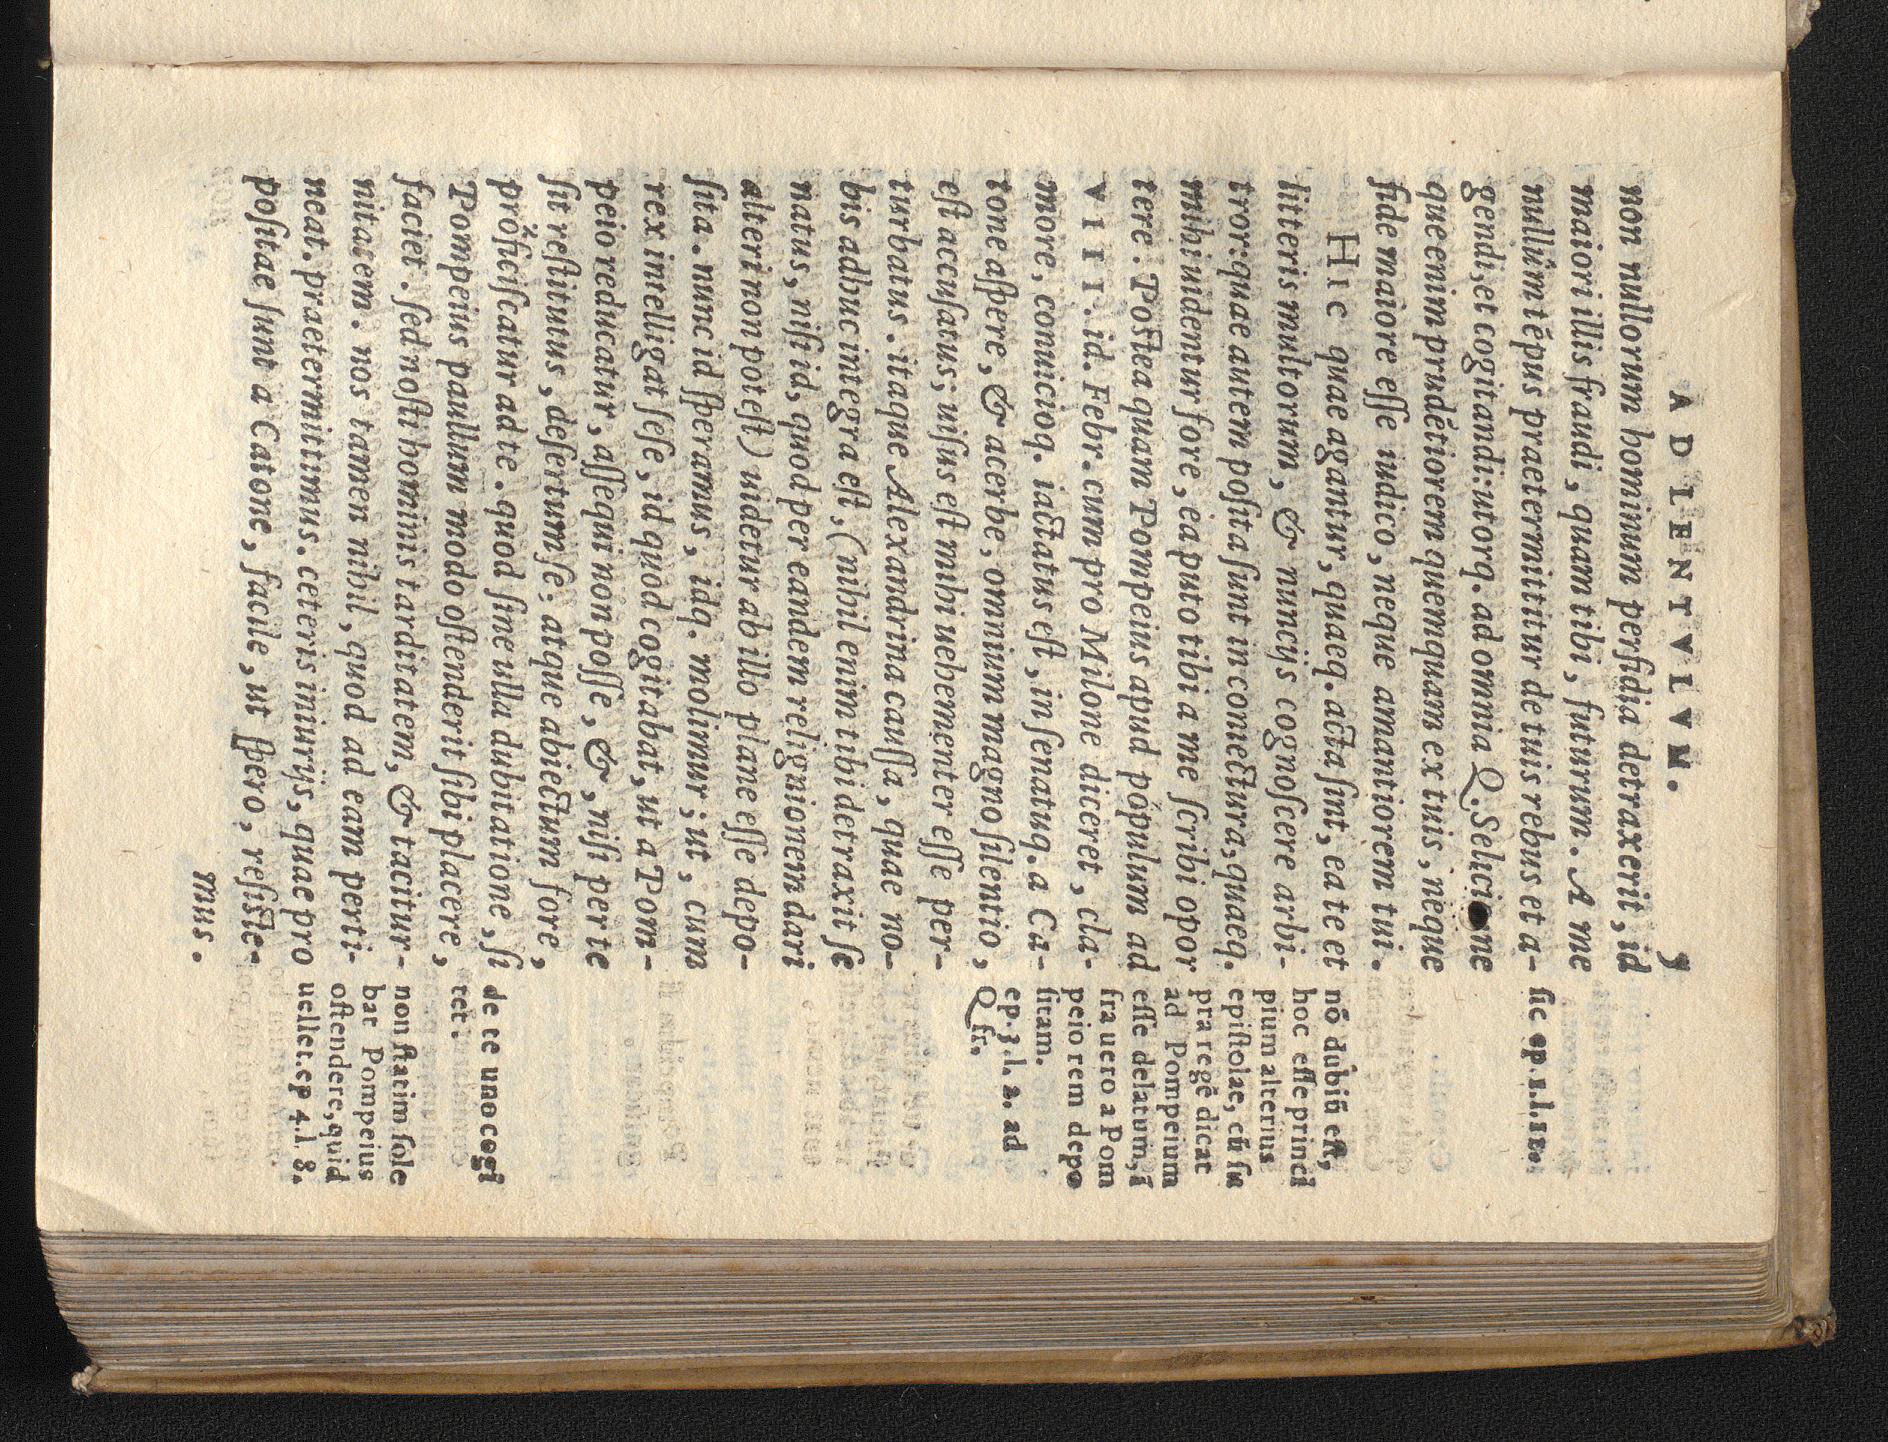 AD LENTVLVM. 5
non nullorum hominum perfidia detraxerit, id
maiori illis fraudi, quam tibi, futurum. A me
nullûm tẽpus praetermittitur de tuis rebus et a-
gendi, et cogitandi: utorq. ad omnia Q. Selicione
que enim prudẽtiorem quemquam ex tuis, neque
fide maiore esse iudico, neque amantiorem tui.
HIC quae agantur, quaeq. acta sint, ea te et
litteris multorum, & nuncijs cognoscere arbi-
tror: quae autem posita sunt in coniectura, quaeq.
mihi uidentur fore, ea puto tibi a me scribi opor
tere. Postea quam Pompeius apud populum ad
VIII. id. Febr. cum pro Milone diceret, cla-
more, conuicioq. iactatus est, in senatuq. a Ca-
tone aspere, & acerbe, omnium magno silentio,
est accusatus; uisus est mihi uehementer esse per-
turbatus. itaque Alexandrina caussa, quae no-
bis adhuc integra est, (nihil enim tibi detraxit se
natus, nisi id, quod per eandem religionem dari
alteri non potest) uidetur ab illo plane esse depo-
sita. nunc id speramus, idq. molimur; ut, cum
rex intelligat sese, id quod cogitabat, ut a Pom-
peio reducatur, assequi non posse, &, nisi per te
sit restitutus, desertum se, atque abiectum fore,
proficiscatur ad te. quod sine ulla dubitatione, si
Pompeius paullum modo ostenderit sibi placere,
faciet. sed nosti hominis tarditatem, & tacitur-
nitatem. nos tamen nihil, quod ad eam perti-
neat. praetermittimus. ceteris iniurijs, quae pro
positae sunt a Catone, facile, ut spero, resiste-
mus.
sic ep. 1. l. 12.
nõ dubiũ est,
hoc esse princi
pium alterius
epistolae, cũ su
pra regẽ dicat
ad Pompeium
esse delatum, ĩ
fra uero a Pom
peio rem depo
sitam.
ep. 3. l. 2. ad
Q fr.
de te uno cogi
tet.
non statim sole
bat Pompeius
ostendere, quid
uellet. ep 4. l 8.